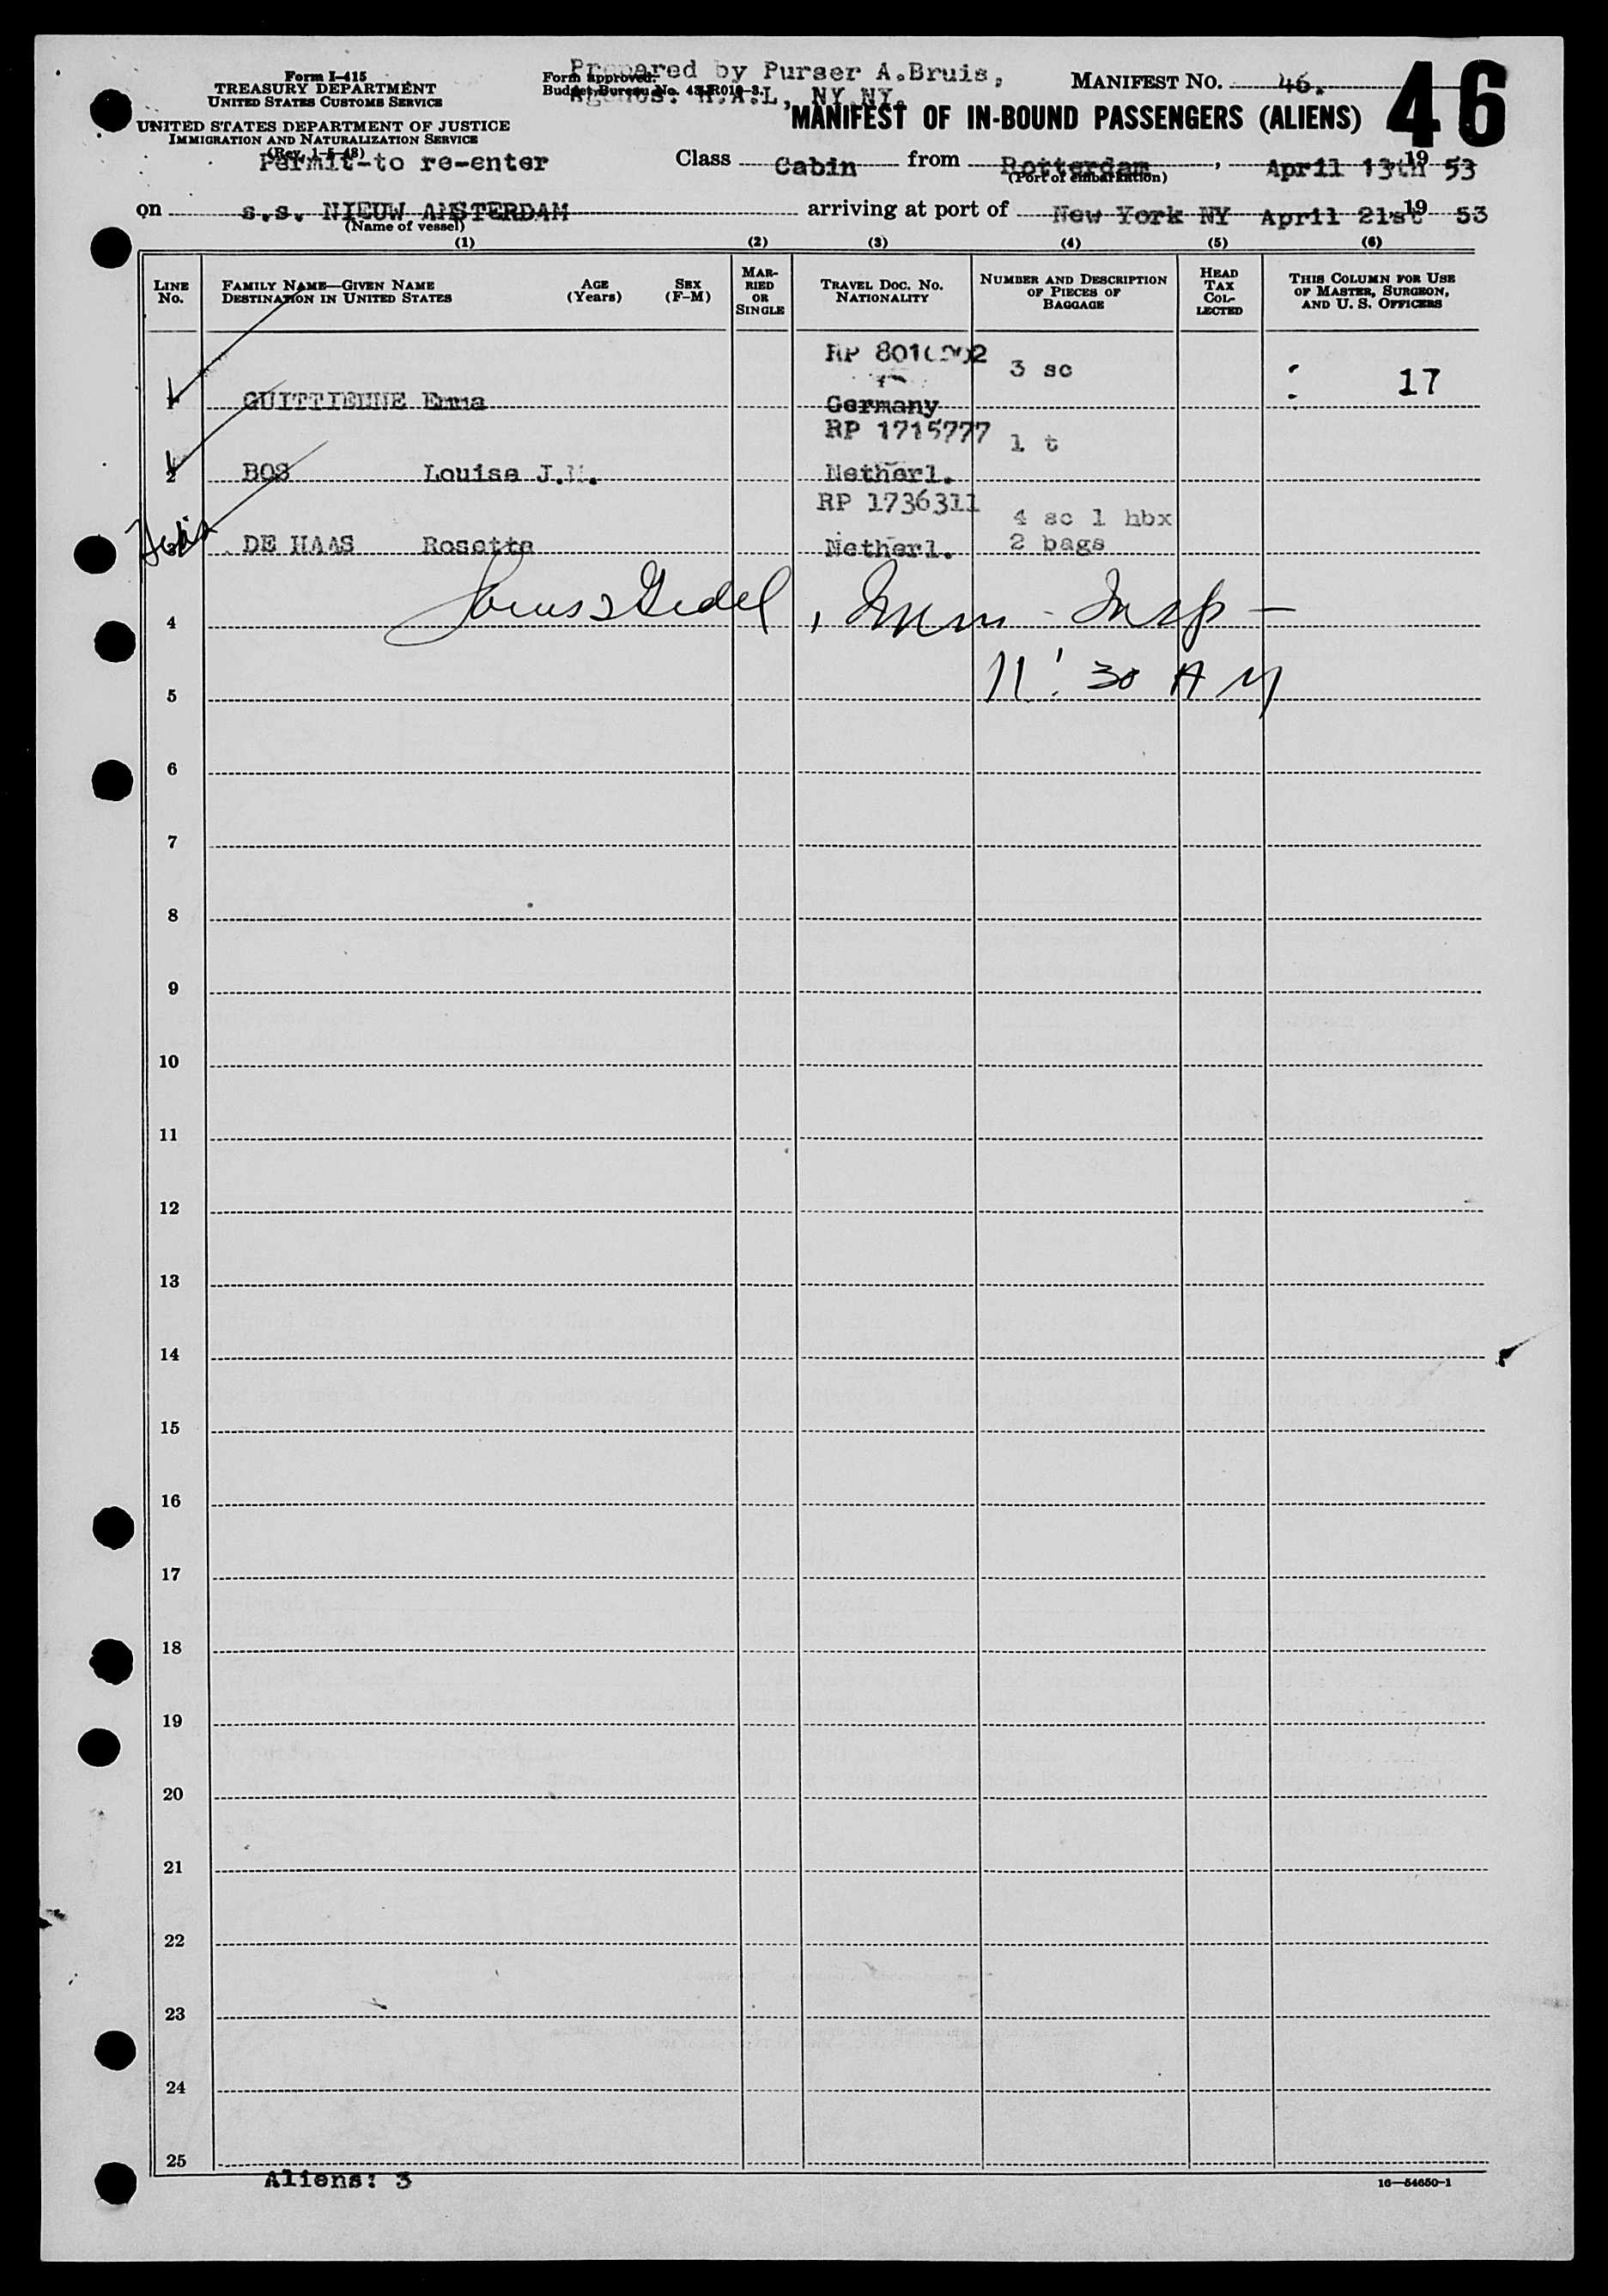 Form I-415
TREASURY DEPARTMENT
UNITED STATES CUSTOMS SERVICE
UNITED STATES DEPARTMENT OF JUSTICE
IMMIGRATION AND NATURALIZATION SERVICE
(Rev. 1-5-48)
Permit-to re-enter
Form approved.
Budget Bureau No. 43-R010-3.
Prepared by Purser A.Bruis,
Agents: H.A.L, NY NY.
MANIFEST NO. 46.
46
MANIFEST OF IN-BOUND PASSENGERS (ALIENS)
Class Cabin from Rotterdam, April 13th 19 53
(Port of embarkation)
on s.s. NIEUW AMSTERDAM arriving at port of New York NY April 21st 19 53
(Name of vessel)
(1) (2) (3) (4) (5) (6)
LINE NO.
FAMILY NAME—GIVEN NAME
DESTINATION IN UNITED STATES
AGE (Years)
SEX (F-M)
MARRIED OR SINGLE
TRAVEL DOC. NO.
NATIONALITY
NUMBER AND DESCRIPTION OF PIECES OF BAGGAGE
HEAD TAX COLLECTED
THIS COLUMN FOR USE OF MASTER, SURGEON, AND U. S. OFFICERS
RP 3 sc
1 GUITTIENNE Emma Germany 17
RP 1715777 1 t
2 BOS Louise J. Netherl.
RP 1736311 4 sc 1 hbx
3 DE HAAS Rosette Netherl. 2 bags
4 , Imm - Insp -
5 11:30 AM
6
7
8
9
10
11
12
13
14
15
16
17
18
19
20
21
22
23
24
25
Aliens: 3
16—54650-1